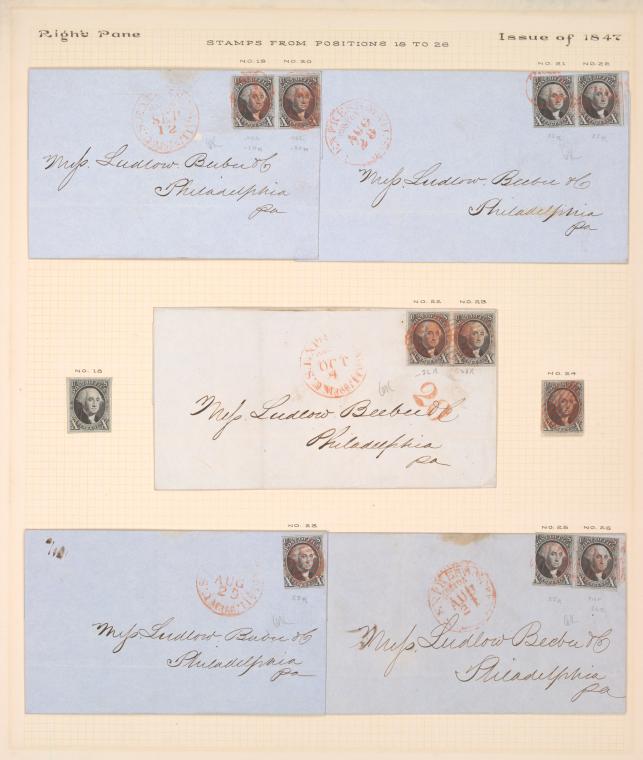 Right Pane
Issue of 1847
STAMPS FROM POSITIONS 18 TO 26
NO. 19 NO. 20
SEP
12
Mess. Ludlow. Beebee & C
Philadelphia
Pa
NO. 21 NO. 22
AUG
28
Mess. Ludlow. Beebee & C
Philadelphia
Pa
NO. 22 NO. 23
OCT
4
20
Mess. Ludlow Beebee & C
Philadelphia
Pa
NO. 18
X X
NO. 24
X X
NO. 23
AUG
25
Mess. Ludlow. Beebee & C
Philadelphia
Pa
NO. 25 NO. 26
AUG
21
Mess. Ludlow. Beebee & C
Philadelphia
Pa